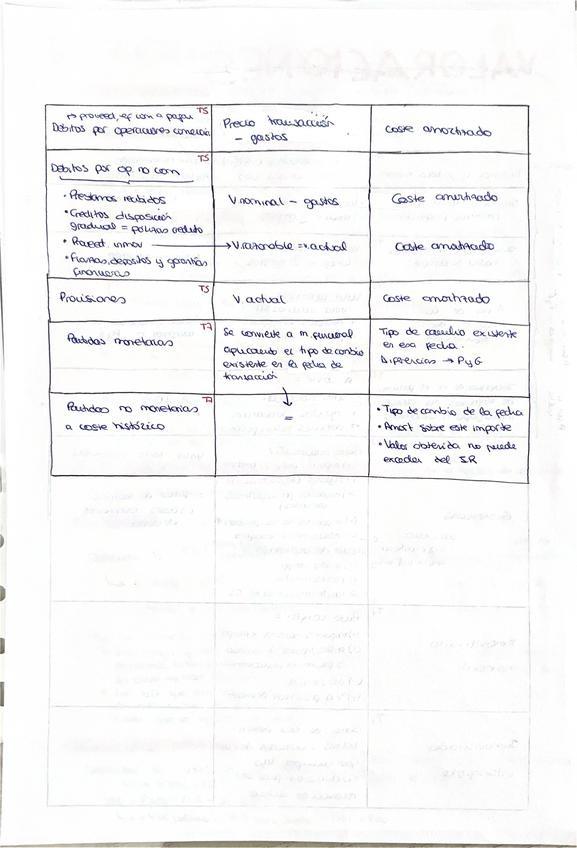 → proveed, ef com a pagar T5
Débitos por operaciones comercia
Precio transacción
- gastos
Coste amortizado
T5
Débitos por op. no com
• Prestamos recibidos
• Creditos disposición
gradual = polizas credito
• Proveed. inmov
• Fianzas, depositos y garantías
financieras
V nominal - gastos
→ V. razonable = v. actual
Coste amortizado
Coste amortizado
Provisiones T5
V actual
Coste amortizado
Partidas monetarias T7
Se convierte a m. funcional
aplicando el tipo de cambio
existente en la fecha de
transacción
Tipo de cambio existente
en esa fecha.
Diferencias → PyG
Partidas no monetarias T7
a coste histórico
↓
=
• Tipo de cambio de la fecha
• Amort sobre este importe
• Valor obtenida no puede
exceder del I.R